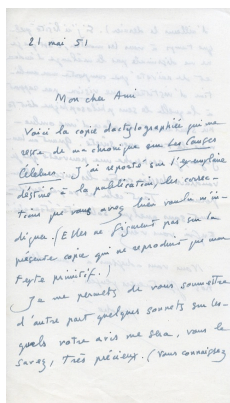 21 mai 51
Mon cher Ami
Voici la copie dactylographiée qui me
reste de ma chronique sur Les Causes
Célèbres. J'ai reporté sur l'exemplaire
destiné à la publication, les correc-
tions que vous avez bien voulu m'in-
diquer. (Elles ne figurent pas sur la
présente copie qui ne reproduit que mon
texte primitif.)
Je me permets de vous soumettre
d'autre part quelques sonnets sur les-
quels votre avis me sera, vous le
savez, très précieux. (Vous connaissez